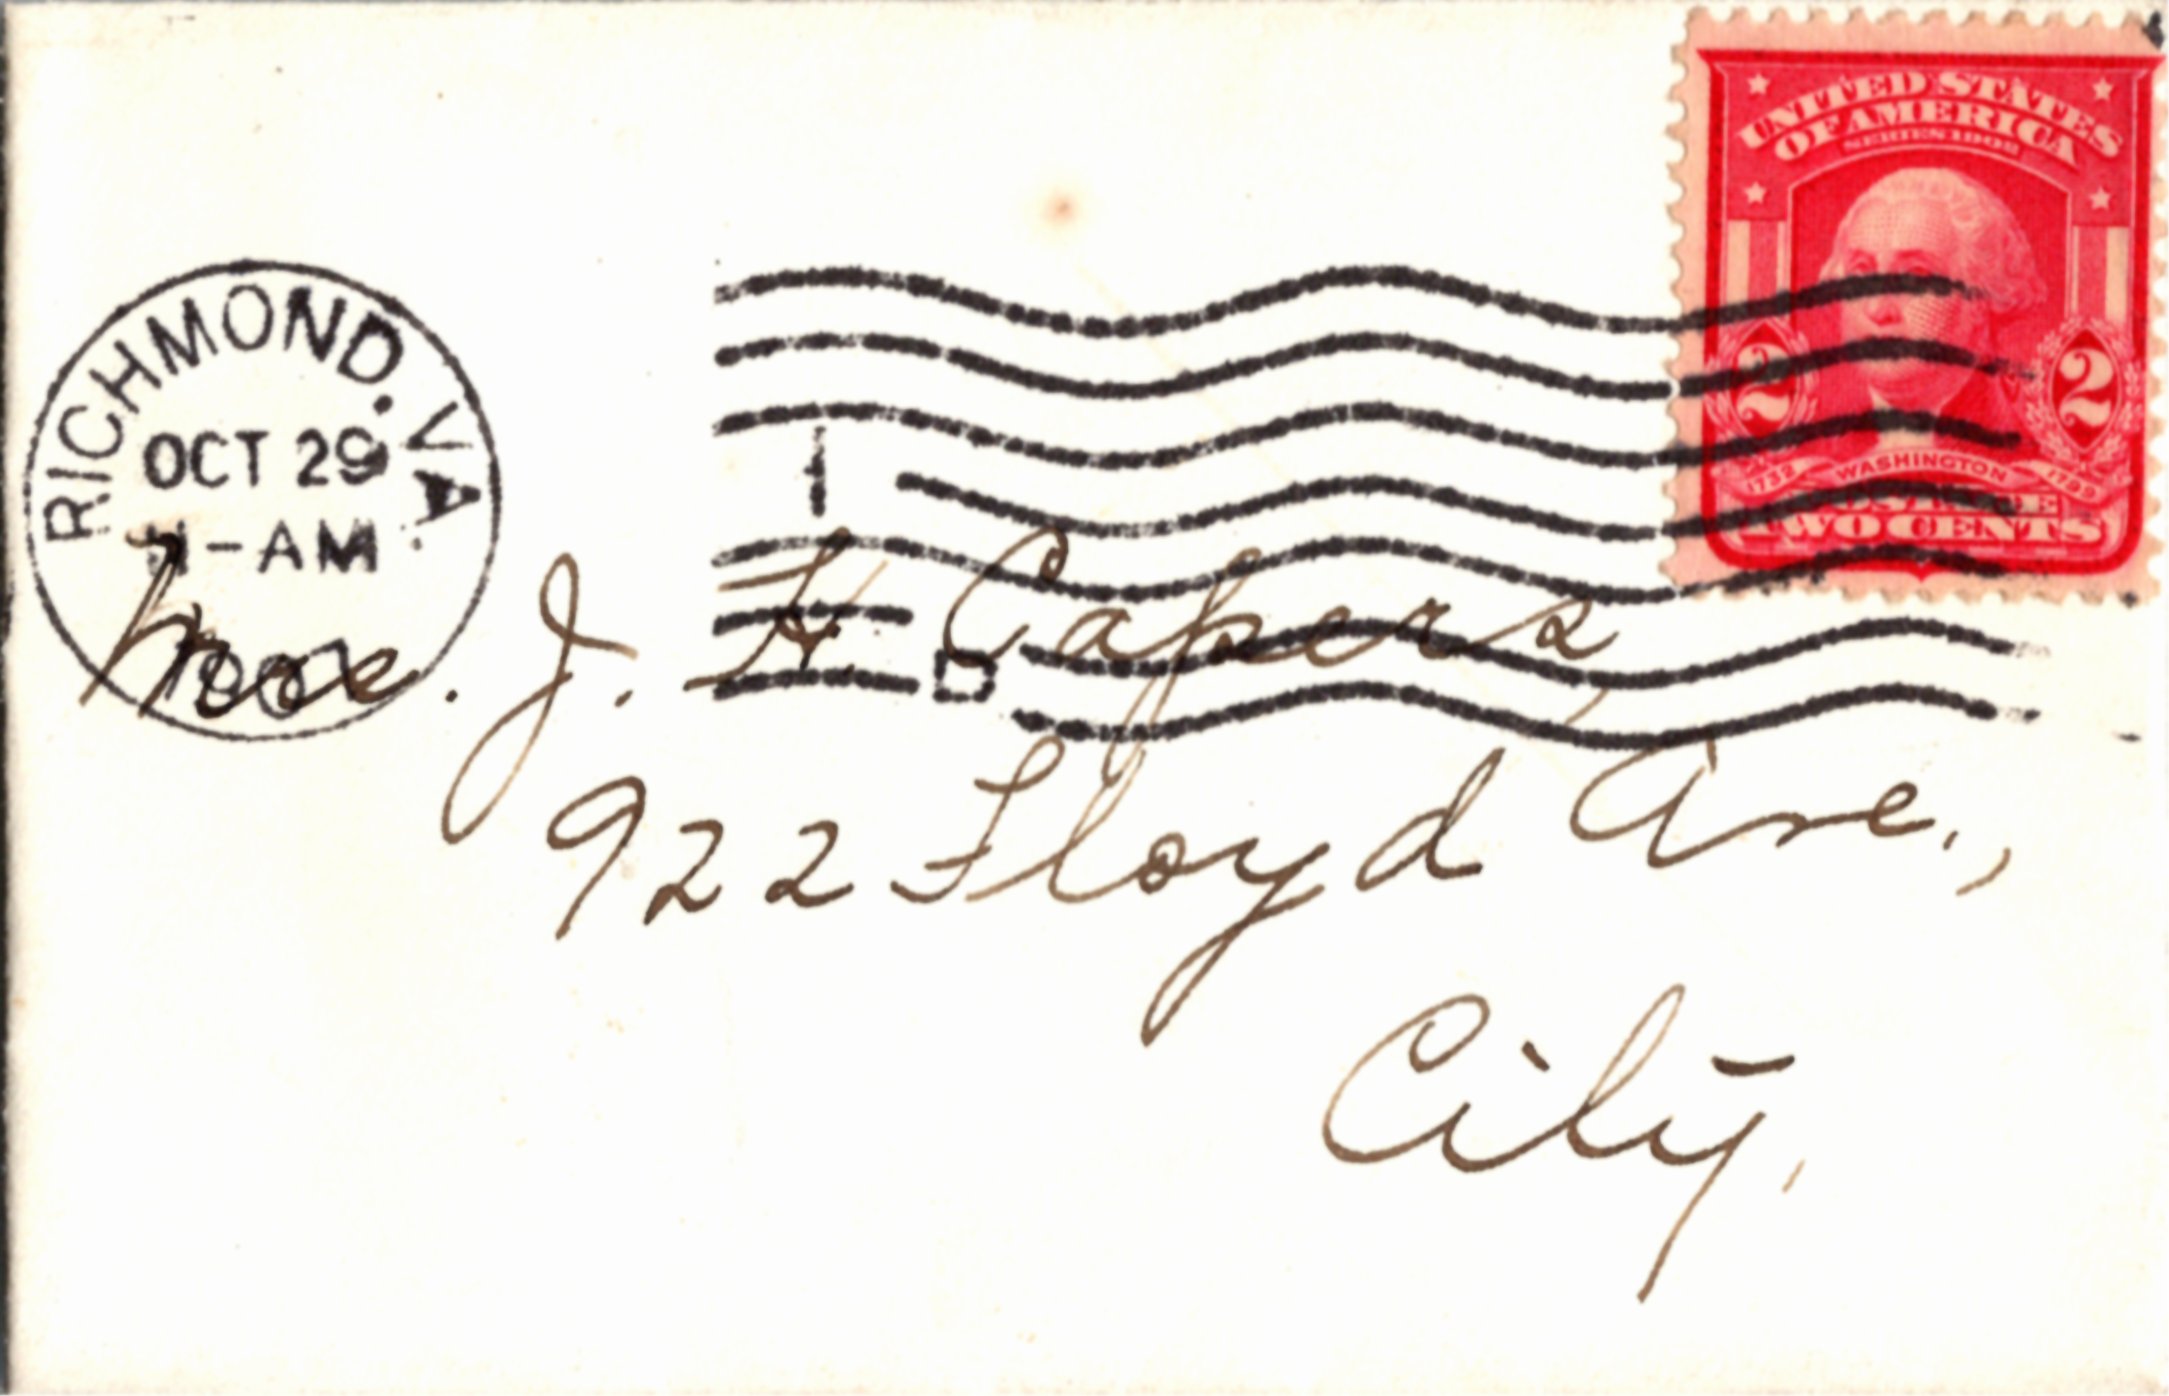 UNITED STATES
OF AMERICA
SERIES 1902
2 2
1732 WASHINGTON 1799
POSTAGE
TWO CENTS
RICHMOND, VA.
OCT 29
11-AM
1
Mrs. J. H. Capers,
922 Floyd Ave.,
City.